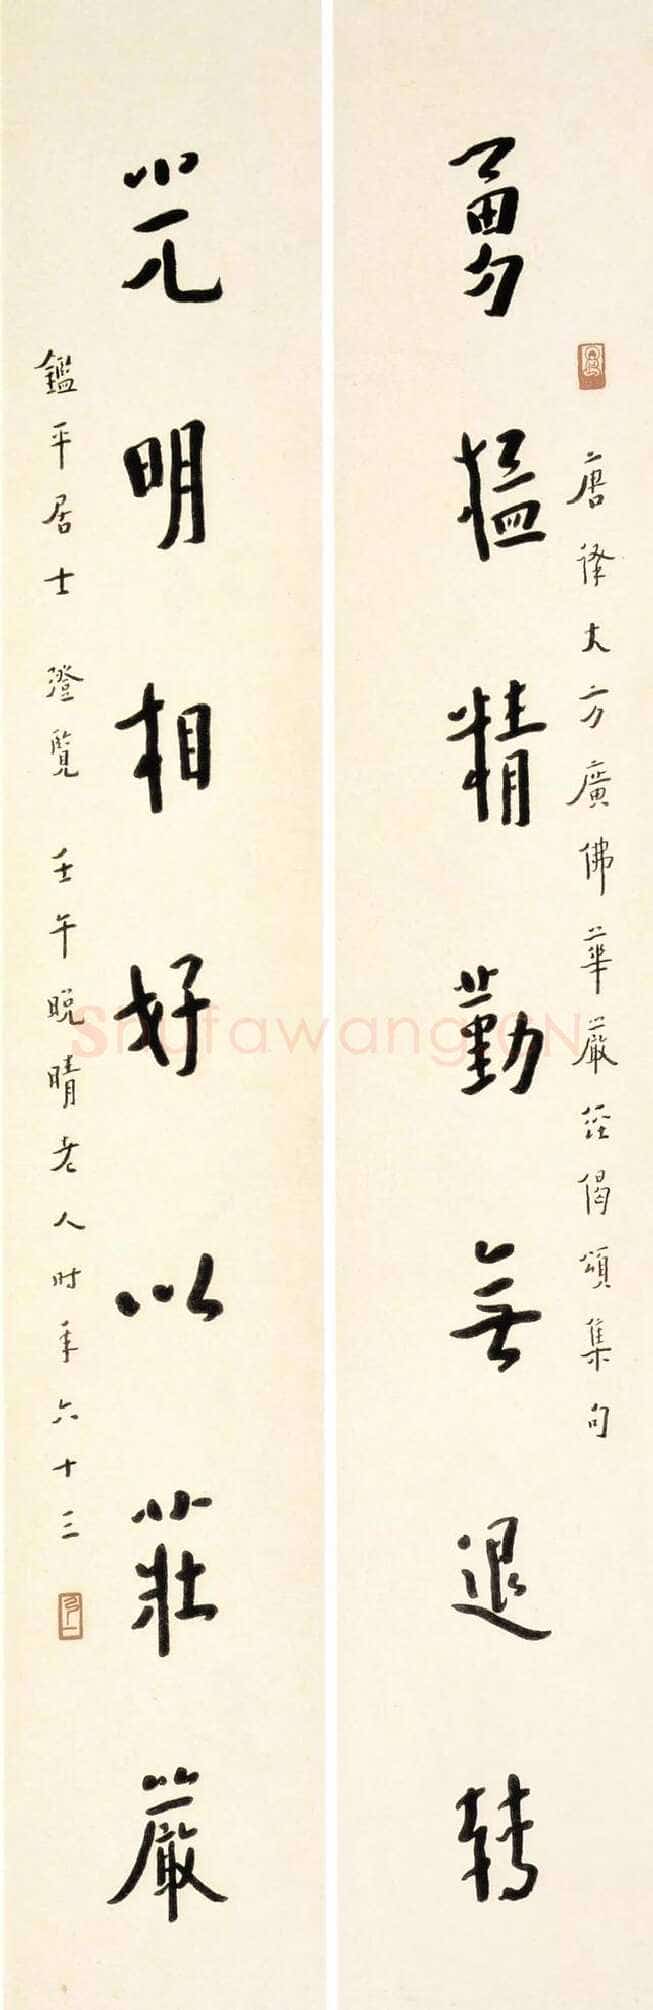 唐译大方廣佛華嚴經偈頌集句
勇猛精勤無退轉
光明相好以莊嚴
鑑平居士 澄覽 壬午晚晴老人时年六十三
shufawang.CN